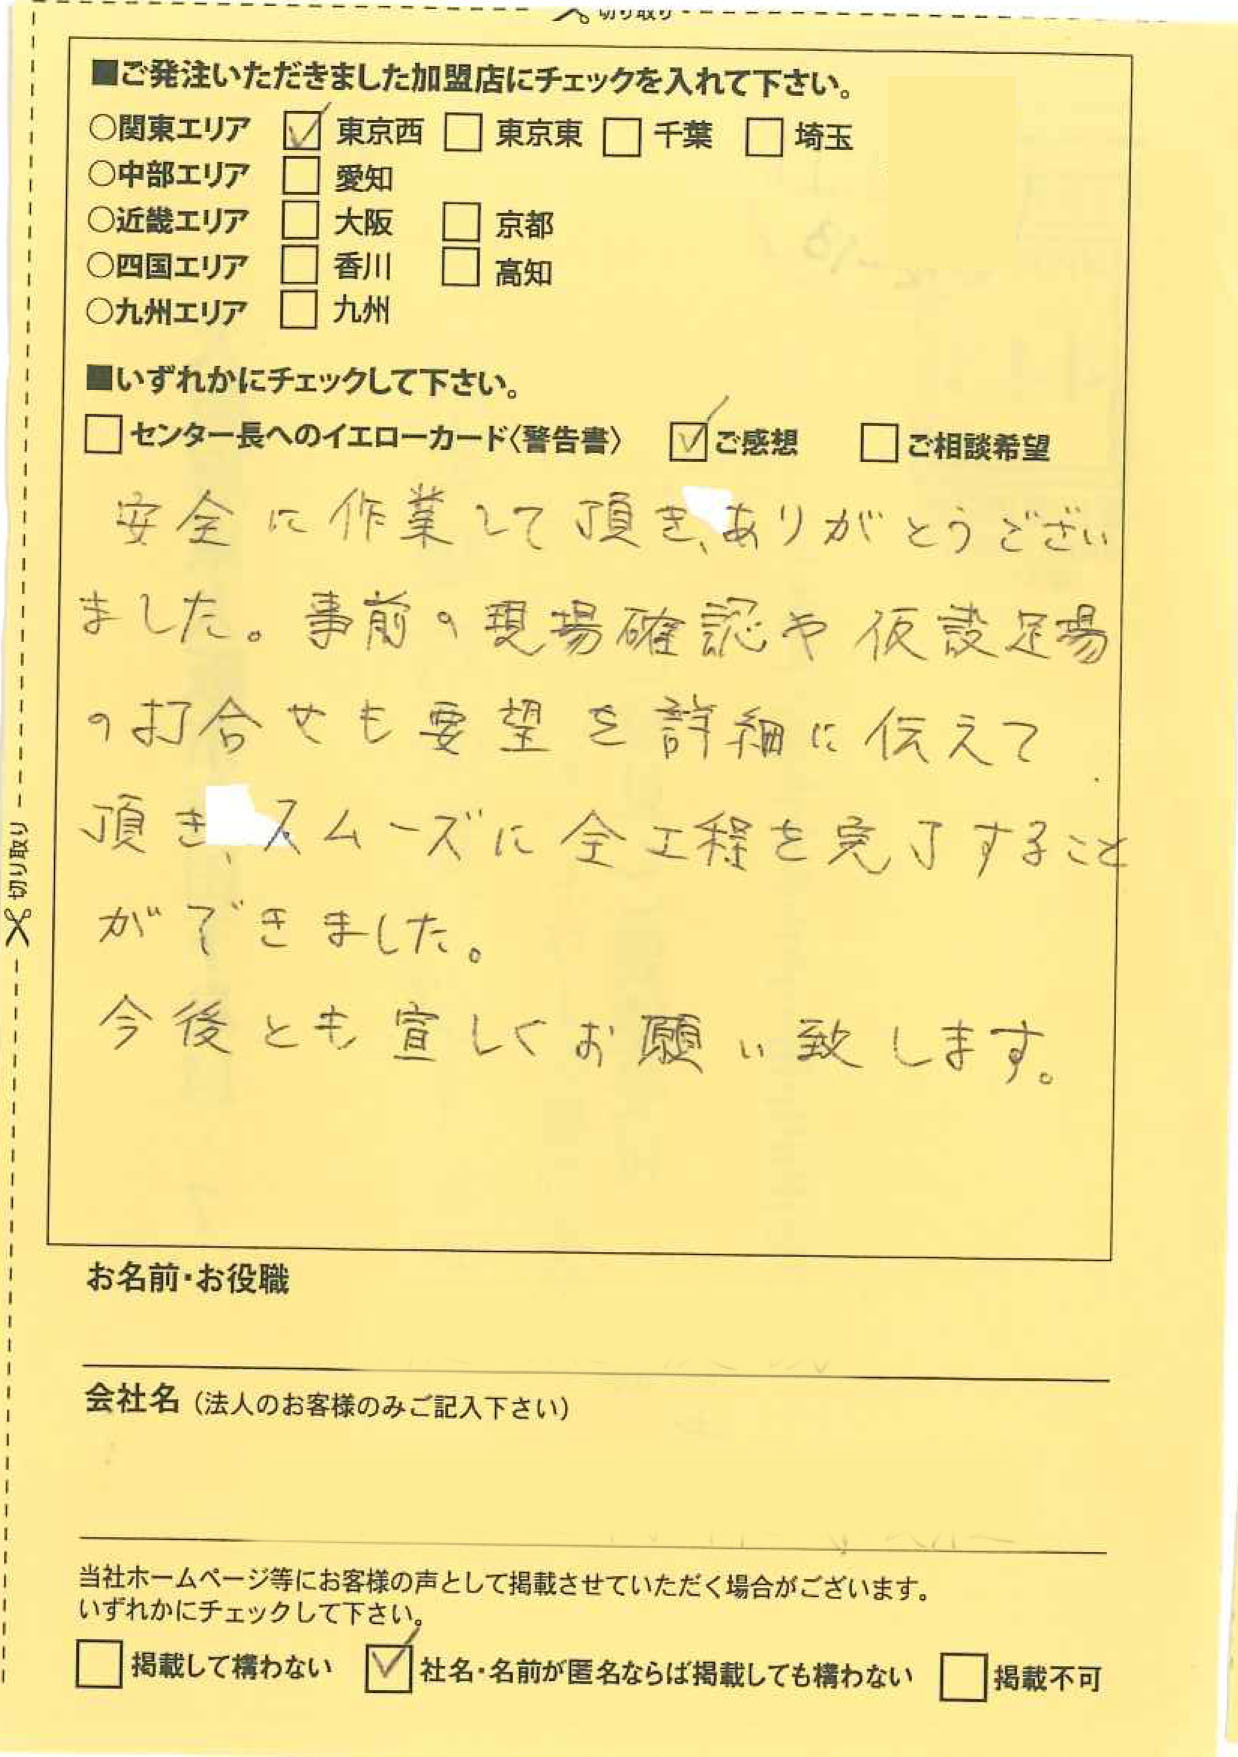 切り取り
■ご発注いただきました加盟店にチェックを入れて下さい。
○関東エリア ☑ 東京西 □ 東京東 □ 千葉 □ 埼玉
○中部エリア □ 愛知
○近畿エリア □ 大阪 □ 京都
○四国エリア □ 香川 □ 高知
○九州エリア □ 九州
■いずれかにチェックして下さい。
□ センター長へのイエローカード〈警告書〉 ☑ ご感想 □ ご相談希望
安全に作業して頂き、ありがとうござい
ました。事前の現場確認や仮設足場
の打合せも要望を詳細に伝えて
頂き、スムーズに全工程を完了すること
ができました。
今後とも宜しくお願い致します。
切り取り
お名前・お役職
会社名（法人のお客様のみご記入下さい）
当社ホームページ等にお客様の声として掲載させていただく場合がございます。
いずれかにチェックして下さい。
□ 掲載して構わない ☑ 社名・名前が匿名ならば掲載しても構わない □ 掲載不可